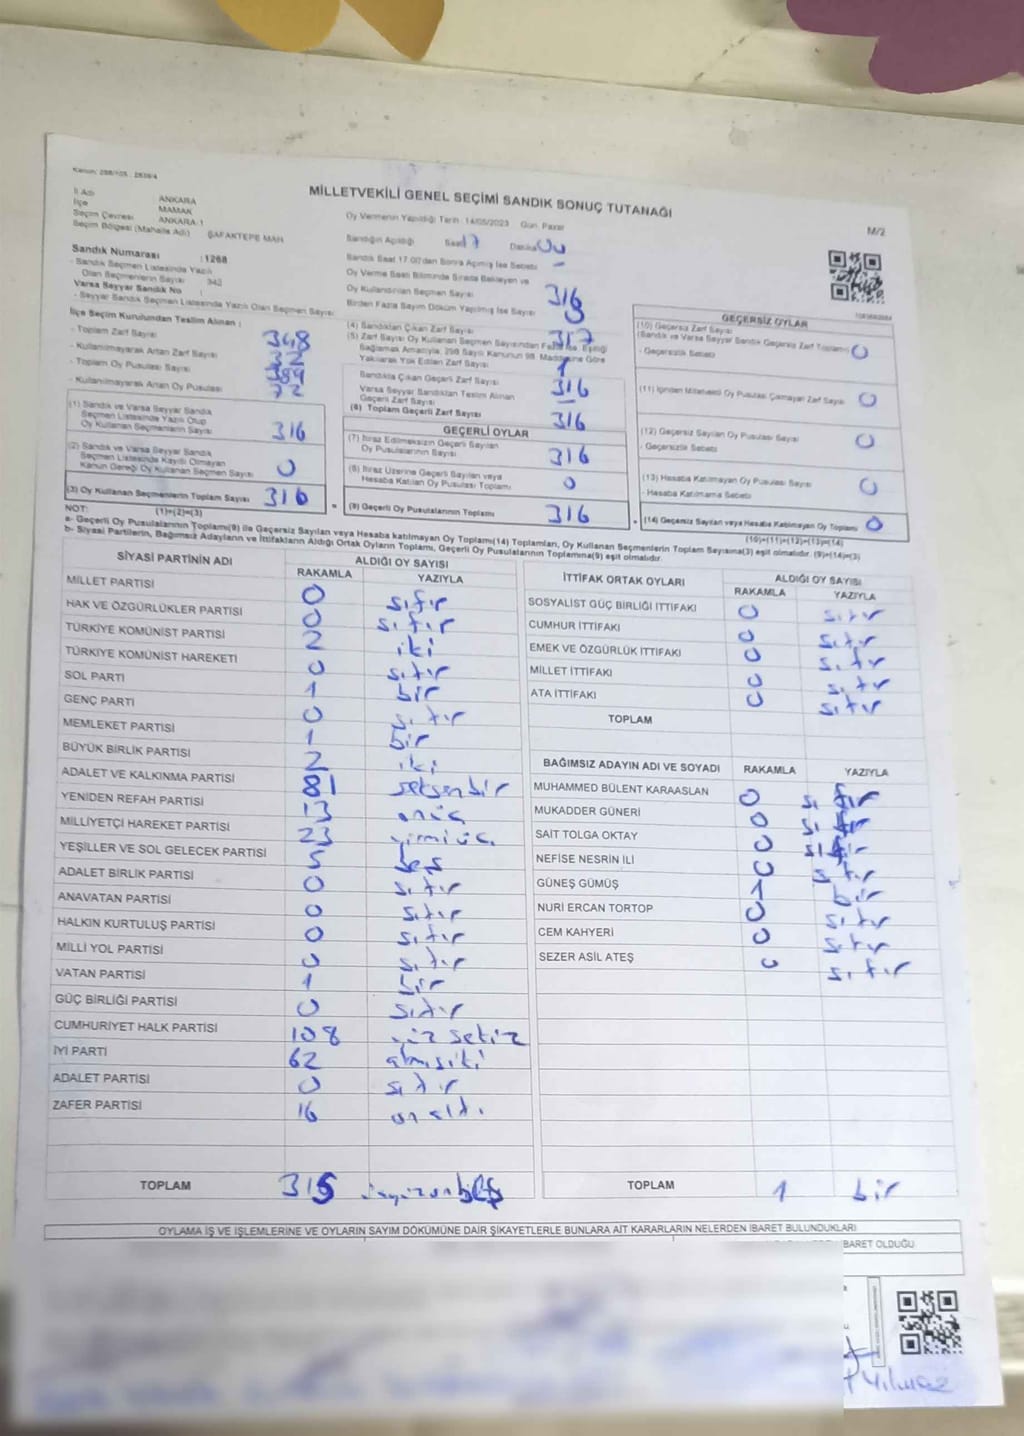 Kanun: 298/105 , 2839/4
MİLLETVEKİLİ GENEL SEÇİMİ SANDIK SONUÇ TUTANAĞI
M/2
İl Adı ANKARA
İlçe MAMAK
Seçim Çevresi ANKARA-1
Seçim Bölgesi (Mahalle Adı) ŞAFAKTEPE MAH
Oy Vermenin Yapıldığı Tarih : 14/05/2023 Gün: Pazar
Sandığın Açıldığı Saat 17 Dakika 00
Sandık Numarası : 1268
- Sandık Seçmen Listesinde Yazılı Olan Seçmenlerin Sayısı : 342
Varsa Seyyar Sandık No :
- Seyyar Sandık Seçmen Listesinde Yazılı Olan Seçmen Sayısı
Sandık Saat 17.00'dan Sonra Açılmış İse Sebebi -
Oy Verme Saati Bitiminde Sırada Bekleyen ve
Oy Kullandırılan Seçmen Sayısı
Birden Fazla Sayım Döküm Yapılmış İse Sayısı
316
İlçe Seçim Kurulundan Teslim Alınan :
- Toplam Zarf Sayısı 348
- Kullanılmayarak Artan Zarf Sayısı
- Toplam Oy Pusulası Sayısı
- Kullanılmayarak Artan Oy Pusulası 72
(1) Sandık ve Varsa Seyyar Sandık
Seçmen Listesinde Yazılı Olup
Oy Kullanan Seçmenlerin Sayısı 316
(2) Sandık ve Varsa Seyyar Sandık
Seçmen Listesinde Kayıtlı Olmayan
Kanun Gereği Oy Kullanan Seçmen Sayısı 0
(3) Oy Kullanan Seçmenlerin Toplam Sayısı 316
(4) Sandıktan Çıkan Zarf Sayısı 317
(5) Zarf Sayısı Oy Kullanan Seçmen Sayısından Fazla İse, Eşitliği
Sağlamak Amacıyla, 298 Sayılı Kanunun 98. Maddesine Göre
Yakılarak Yok Edilen Zarf Sayısı 1
Sandıkta Çıkan Geçerli Zarf Sayısı 316
Varsa Seyyar Sandıktan Teslim Alınan
Geçerli Zarf Sayısı -
(6) Toplam Geçerli Zarf Sayısı 316
GEÇERLİ OYLAR
(7) İtiraz Edilmeksizin Geçerli Sayılan
Oy Pusulalarının Sayısı 316
(8) İtiraz Üzerine Geçerli Sayılan veya
Hesaba Katılan Oy Pusulası Toplamı 0
(9) Geçerli Oy Pusulalarının Toplamı 316
GEÇERSİZ OYLAR
(10) Geçersiz Zarf Sayısı
(Sandık ve Varsa Seyyar Sandık Geçersiz Zarf Toplamı) 0
- Geçersizlik Sebebi
(11) İçinden Milletvekili Oy Pusulası Çıkmayan Zarf Sayısı 0
(12) Geçersiz Sayılan Oy Pusulası Sayısı 0
- Geçersizlik Sebebi
(13) Hesaba Katılmayan Oy Pusulası Sayısı 0
- Hesaba Katılmama Sebebi
(14) Geçersiz Sayılan veya Hesaba Katılmayan Oy Toplamı 0
NOT: (1)+(2)=(3) (10)+(11)+(12)+(13)=(14)
a- Geçerli Oy Pusulalarının Toplamı(9) ile Geçersiz Sayılan veya Hesaba katılmayan Oy Toplamı(14) Toplamları, Oy Kullanan Seçmenlerin Toplam Sayısına(3) eşit olmalıdır. (9)+(14)=(3)
b- Siyasi Partilerin, Bağımsız Adayların ve İttifakların Aldığı Ortak Oyların Toplamı, Geçerli Oy Pusulalarının Toplamına(9) eşit olmalıdır.
SİYASİ PARTİNİN ADI ALDIĞI OY SAYISI
RAKAMLA YAZIYLA
MİLLET PARTİSİ 0 sıfır
HAK VE ÖZGÜRLÜKLER PARTİSİ 0 sıfır
TÜRKİYE KOMÜNİST PARTİSİ 2 iki
TÜRKİYE KOMÜNİST HAREKETİ 0 sıfır
SOL PARTİ 1 bir
GENÇ PARTİ 0 sıfır
MEMLEKET PARTİSİ 1 bir
BÜYÜK BİRLİK PARTİSİ 2 iki
ADALET VE KALKINMA PARTİSİ 81 seksenbir
YENİDEN REFAH PARTİSİ 13 onüç
MİLLİYETÇİ HAREKET PARTİSİ 23 yirmiüç
YEŞİLLER VE SOL GELECEK PARTİSİ 5 beş
ADALET BİRLİK PARTİSİ 0 sıfır
ANAVATAN PARTİSİ 0 sıfır
HALKIN KURTULUŞ PARTİSİ 0 sıfır
MİLLİ YOL PARTİSİ 0 sıfır
VATAN PARTİSİ 1 bir
GÜÇ BİRLİĞİ PARTİSİ 0 sıfır
CUMHURİYET HALK PARTİSİ 108 yüz sekiz
İYİ PARTİ 62 atmışiki
ADALET PARTİSİ 0 sıfır
ZAFER PARTİSİ 16 on altı
TOPLAM 315 üçyüzonbeş
İTTİFAK ORTAK OYLARI ALDIĞI OY SAYISI
RAKAMLA YAZIYLA
SOSYALİST GÜÇ BİRLİĞİ İTTİFAKI 0 sıfır
CUMHUR İTTİFAKI 0 sıfır
EMEK VE ÖZGÜRLÜK İTTİFAKI 0 sıfır
MİLLET İTTİFAKI 0 sıfır
ATA İTTİFAKI 0 sıfır
TOPLAM
BAĞIMSIZ ADAYIN ADI VE SOYADI RAKAMLA YAZIYLA
MUHAMMED BÜLENT KARAASLAN 0 sıfır
MUKADDER GÜNERİ 0 sıfır
SAİT TOLGA OKTAY 0 sıfır
NEFİSE NESRİN İLİ 0 sıfır
GÜNEŞ GÜMÜŞ 1 bir
NURİ ERCAN TORTOP 0 sıfır
CEM KAHYERİ 0 sıfır
SEZER ASİL ATEŞ 0 sıfır
TOPLAM 1 bir
OYLAMA İŞ VE İŞLEMLERİNE VE OYLARIN SAYIM DÖKÜMÜNE DAİR ŞİKAYETLERLE BUNLARA AİT KARARLARIN NELERDEN İBARET BULUNDUKLARI
BARET OLDUĞU
Yılmaz